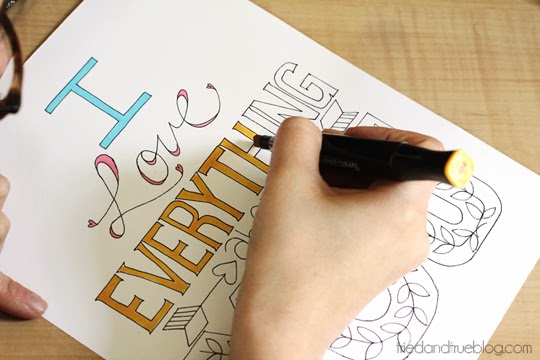 I
Love
EVERYTHING
friedandtrueblog.com